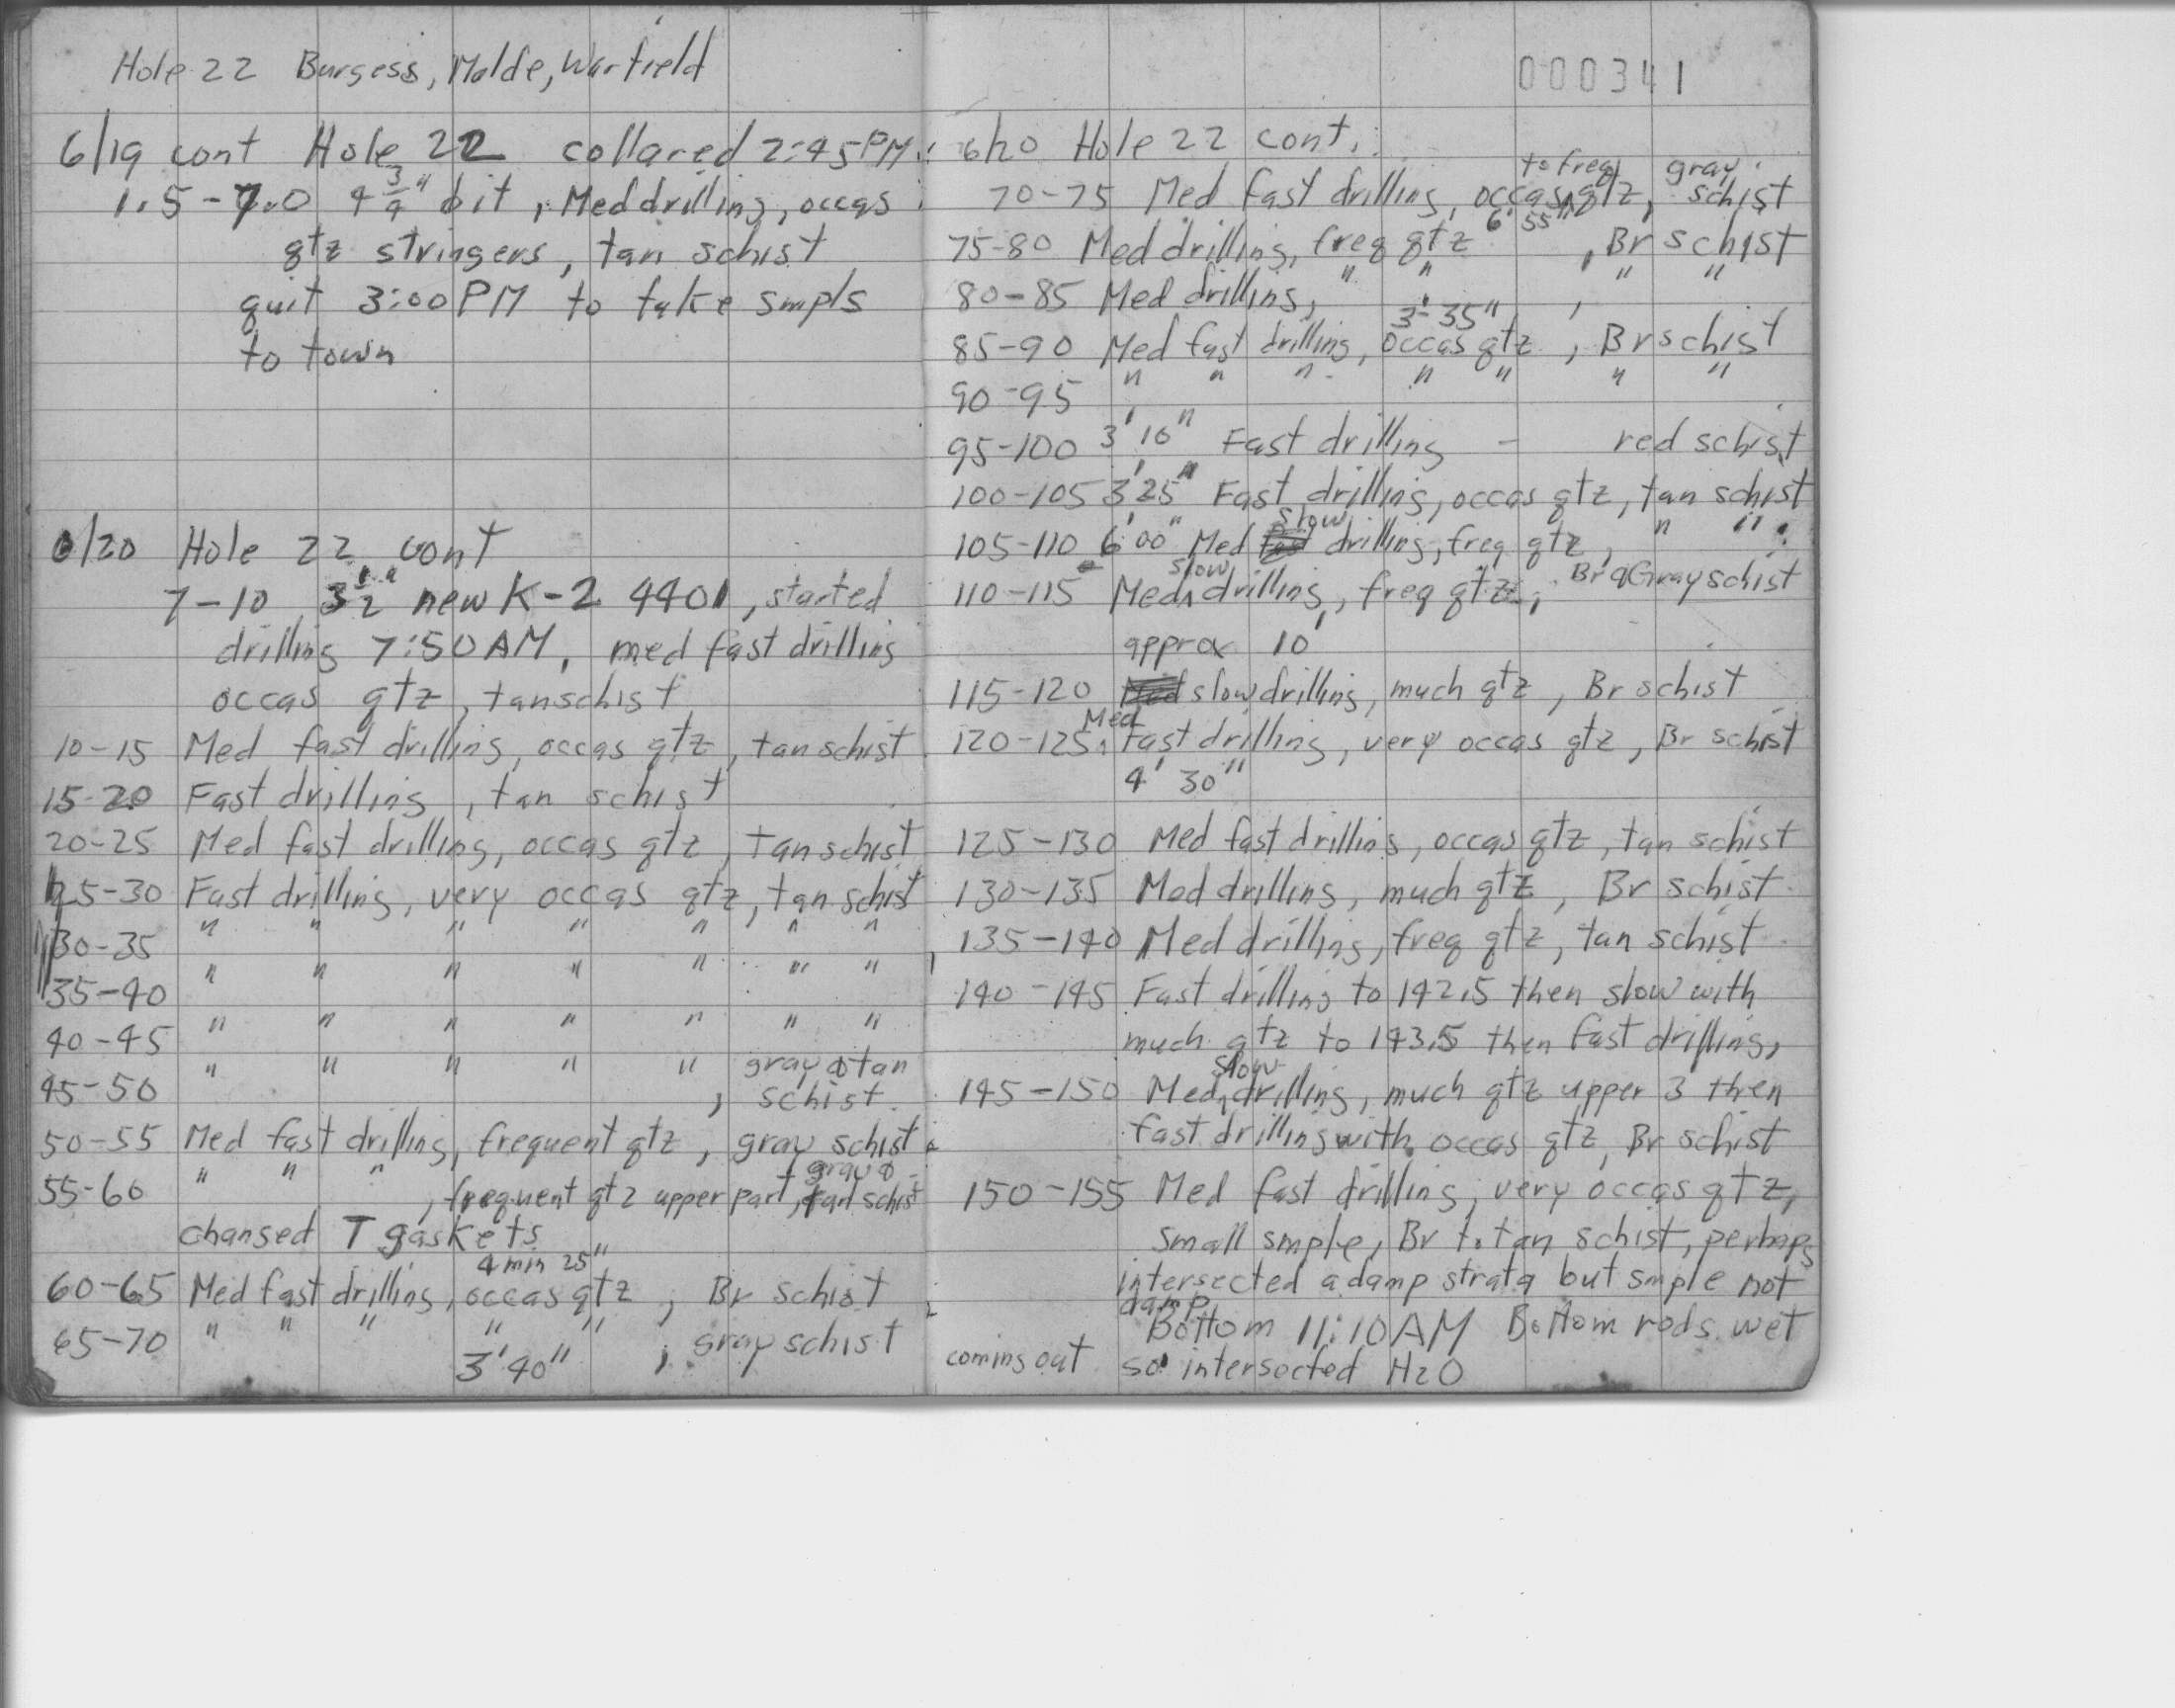 Hole 22 Burgess, Molde, Warfield
6/19 cont Hole 22 collared 2:45 PM.
1.5-7.0 4 3/4" bit, Med drilling, occas
qtz stringers, tan schist
quit 3:00 PM to take smpls
to town
6/20 Hole 22 cont
7-10 3 1/2" new K-2 4401, started
drilling 7:50 AM, med fast drilling
occas qtz, tan schist
10-15 Med fast drilling, occas qtz, tan schist
15-20 Fast drilling, tan schist
20-25 Med fast drilling, occas qtz, tan schist
25-30 Fast drilling, very occas qtz, tan schist
30-35 " " " " " " "
35-40 " " " " " " "
40-45 " " " " " " "
45-50 " " " " " gray & tan
, schist
50-55 Med fast drilling, frequent qtz, gray schist
gray &
55-60 " " " , frequent qtz upper part, tan schist
changed T gaskets
4 min 25"
60-65 Med fast drilling, occas qtz, Br schist
65-70 " " " " " , gray schist
3' 40"
000341
6/20 Hole 22 cont.
to freq gray
70-75 Med fast drilling, occas qtz, schist
6' 55"
75-80 Med drilling, freq qtz, Br schist
80-85 Med drilling, " " , " "
3' 35"
85-90 Med fast drilling, occas qtz, Br schist
90-95 " " " " " " "
95-100 3' 10" Fast drilling - red schist
100-105 3' 25" Fast drilling, occas qtz, tan schist
slow
105-110 6' 00" Med drilling, freq qtz, " "
slow
110-115 Med drilling, freq qtz, Br & Gray schist
approx 10'
115-120 slow drilling, much qtz, Br schist
Med
120-125 Fast drilling, very occas qtz, Br schist
4' 30"
125-130 Med fast drilling, occas qtz, tan schist
130-135 Med drilling, much qtz, Br schist
135-140 Med drilling, freq qtz, tan schist
140-145 Fast drilling to 142.5 then slow with
much qtz to 143.5 then fast drilling,
slow
145-150 Med drilling, much qtz upper 3 then
fast drilling with occas qtz, Br schist
150-155 Med fast drilling, very occas qtz,
small smple, Br to tan schist, perhaps
intersected a damp strata but smple not
damp
Bottom 11:10 AM Bottom rods wet
coming out so intersected H2O